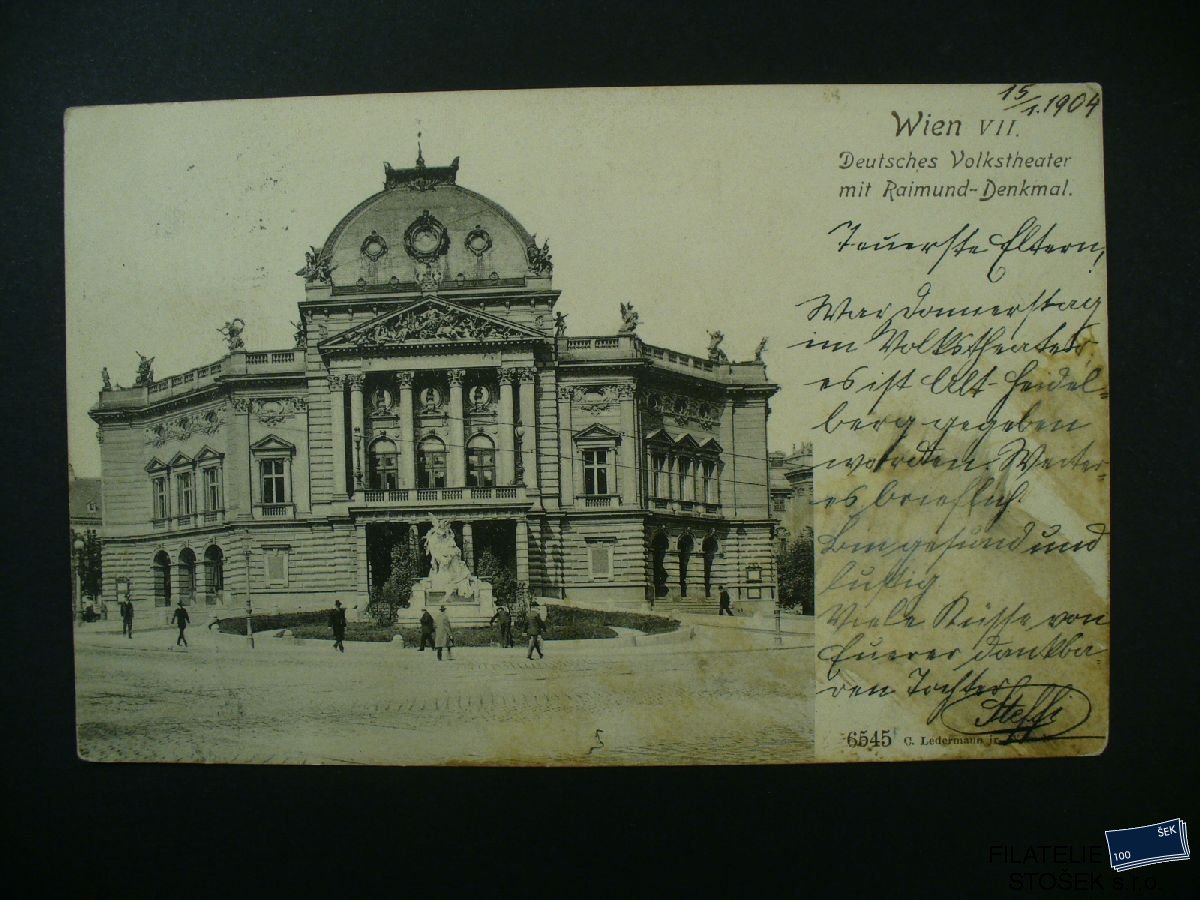 15/1. 1904
Wien VII.
Deutsches Volkstheater
mit Raimund-Denkmal.
Teuerste Eltern,
War donnerstag
im Volkstheater
es ist Alt Heidel-
berg gegeben
worden. Weiter
es brieflich
bin gesund und
lustig
Viele Küsse von
Euerer dankba
ren Tochter
Steffi
6545 C. Ledermann jr.
FILATELIE
STOŠEK s.r.o.
100
ŠEK